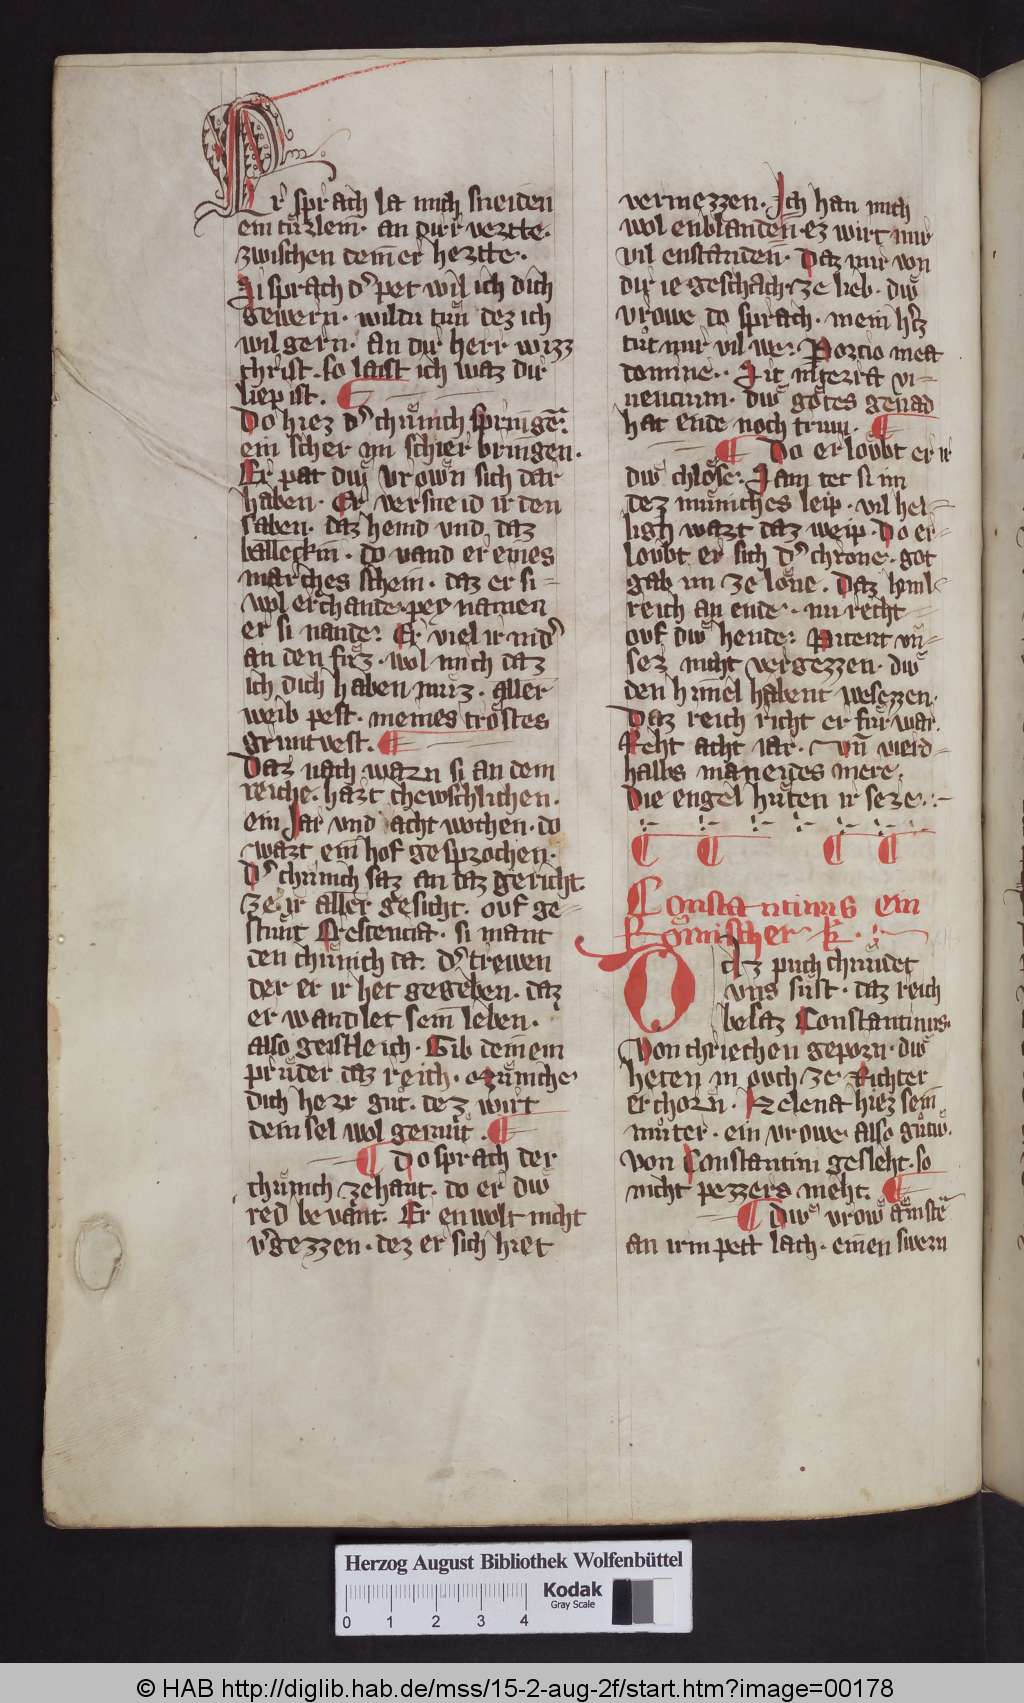 Er sprach la mich sneiden
ein tůrlein · an dirr vertte ·
zwischen deiner hertte ·
Si sprach d͛ pet wil ich dich
gewern · wildu tůn dez ich
wil gern · an dir herr wizz
christ · so laist ich waz dir
liep ist · ¶
Do hiez d͛ chůnich springē ·
ein scher im schier bringen ·
Er pat diu vrown sich dar
haben · Er versneid ir den
saben · daz hemd vnd daz
balleckin · do vand er eines
marches schein · daz er si=
wol erchande · pey namen
er si nande · Er viel ir nid͛
an den fůz · wol mich daz
ich dich haben můz · aller
weib pest · meines trostes
gruntvest · ¶
Daz nach warn si an dem
reiche · hart chewschlichen ·
ein Jar vnd acht wochen · do
wart ein hof gesprochen ·
D͛ chůnich saz an daz gericht ·
ze ir aller gesicht · ovf ge=
stunt Crescencia · si mant
den chůnich da · d͛ trewen
der er ir het gegeben · daz
er wandlet sein leben ·
also geistleich · Gib deinem
průder daz reich · můniche
dich herr gůt · dez wirt
dein sel wol gemůt · ¶
¶ Do sprach der
chůnich zehant · do er diw
red bevant · Er en wolt nicht
v͛gezzen · dez er sich hiet
vermezzen · Ich han mich
wol enblanden · ez wirt mir
vil enstanden · Daz mir von
dir ie geschach · ze lieb · diw
vrowe do sprach · mein h͛cz
tůt mir vil we · Porcio mea
domine · Sit in terra vi=
uencium · diw gotes genad
hat ende noch trum · ¶
¶ Do er lovbt er ir
diw chlose · Sam tet si im
dez můniches leip · vil hei=
ligh wart daz weip · Do er=
lovbt er sich d͛ chrone · got
gab im ze lone · Daz himl=
reich an ende · nu recht
ovf diw hende · Pitent vn=
ser nicht vergezzen · diw
den himel habent besezzen ·
Daz reich richt er fůr war ·
Reht acht iar · vn̄ vierd=
halbs maneides mere ·
Die engel hůten ir sele ·
¶ ¶ ¶ ¶
Constantinus ein
Römischer k̄ ·
Daz puch chůndet
vns sust · daz reich
besaz Constantinus ·
Von chriechen geporn · diw
heten in ovch ze Richter
erchorn · Helena hiez sein
můter · ein vrowe also gůtiw ·
von Constantini gesleht · so
nicht pezzers meht · ¶
¶ Diw vrow ainstē
an irm pett lach · einen swern
Herzog August Bibliothek Wolfenbüttel
Kodak
Gray Scale
0 1 2 3 4
© HAB http://diglib.hab.de/mss/15-2-aug-2f/start.htm?image=00178